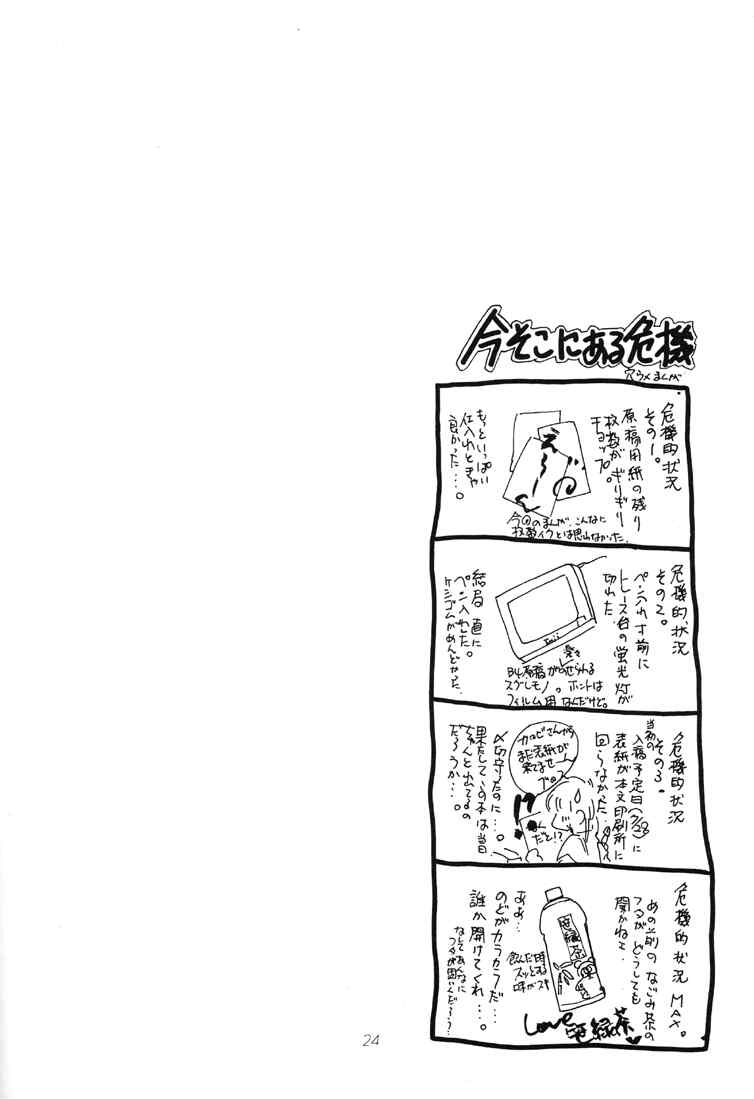 今そこにある危機
穴ウメまんが
危機的状況
その1。
原稿用紙の残り
枚数がギリギリ
チョップ。
えーん
今回のまんが、こんなに
枚数イクとは思わなかった。
もっといっぱい
仕入れときゃ
良かった…。
危機的状況
その2。
ペン入れす前に
トレース台の蛍光灯が
切れた
B4原稿がのせられる
スグレモノ。ホントは
フィルム用なんだけど。
結局直に
ペン入れした。
ケシゴムがめんどかった。
危機的状況
その3。
当初の
入稿予定日(7/28)に
表紙が本文印刷所に
回らなかった。
まだ表紙が
来てません
!?
だと!?
〆切守ったのに…。
果たしてこの本は当日
ちゃんと出てるの
だろうか…。
危機的状況MAX。
あの前のなごみ茶の
フタがどうしても
開かねェ
笹緑茶
飲んだ時
スッとする
味がスキ
Love笹緑茶
あぁ…
のどがカラカラだ…
誰か開けてくれ…。
なしてあんなに
フタが固いんだろう?
24